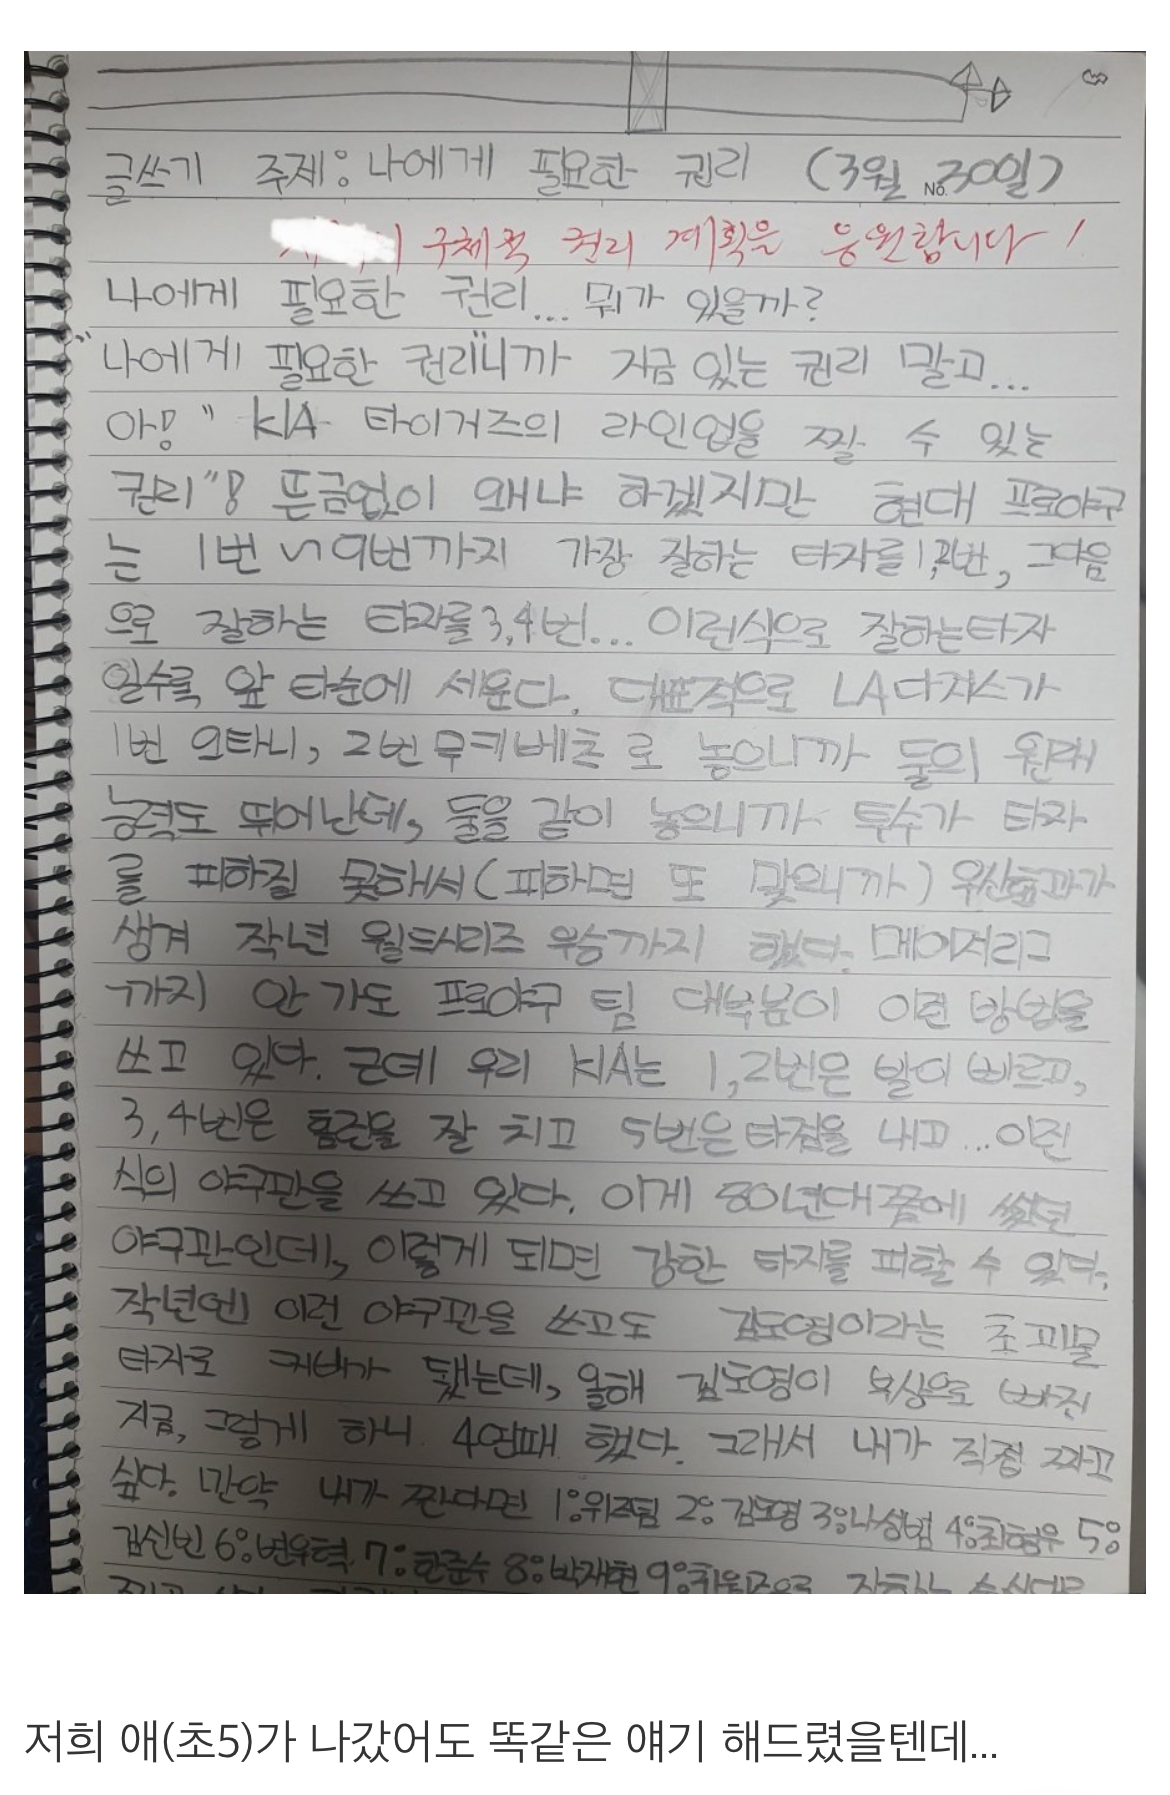 글쓰기 주제: 나에게 필요한 권리 (3월 No. 30일)
구체적 권리 계획을 응원합니다!
나에게 필요한 권리... 뭐가 있을까?
"나에게 필요한 권리"니까 지금 있는 권리 말고...
아! "KIA 타이거즈의 라인업을 짤 수 있는
권리"! 뜬금없이 왜냐 하겠지만 현대 프로야구
는 1번~9번까지 가장 잘하는 타자를 1,2번, 그다음
으로 잘하는 타자를 3,4번... 이런식으로 잘하는타자
일수록 앞 타순에 세운다. 대표적으로 LA다저스가
1번 오타니, 2번 무키베츠로 놓으니까 둘의 원래
능력도 뛰어난데, 둘을 같이 놓으니까 투수가 타자
를 피하질 못해서(피하면 또 맞으니까) 우산효과가
생겨 작년 월드시리즈 우승까지 했다. 메이저리그
까지 안 가도 프로야구 팀 대부분이 이런 방법을
쓰고 있다. 근데 우리 KIA는 1,2번은 발이 빠르고,
3,4번은 홈런을 잘 치고 5번은 타점을 내고...이런
식의 야구관을 쓰고 있다. 이게 80년대 끝에 썼던
야구관인데, 이렇게 되면 강한 타자를 피할 수 있다.
작년엔 이런 야구관을 쓰고도 김도영이라는 초 괴물
타자로 커버가 됐는데, 올해 김도영이 부상으로 빠진
지금, 그렇게 하니 4연패 했다. 그래서 내가 직접 짜고
싶다. 만약 내가 짠다면 1:위즈덤 2:김도영 3:나성범 4:최형우 5:
김선빈 6:변우혁 7:한준수 8:박재현 9:최원준으로
저희 애(초5)가 나갔어도 똑같은 얘기 해드렸을텐데...